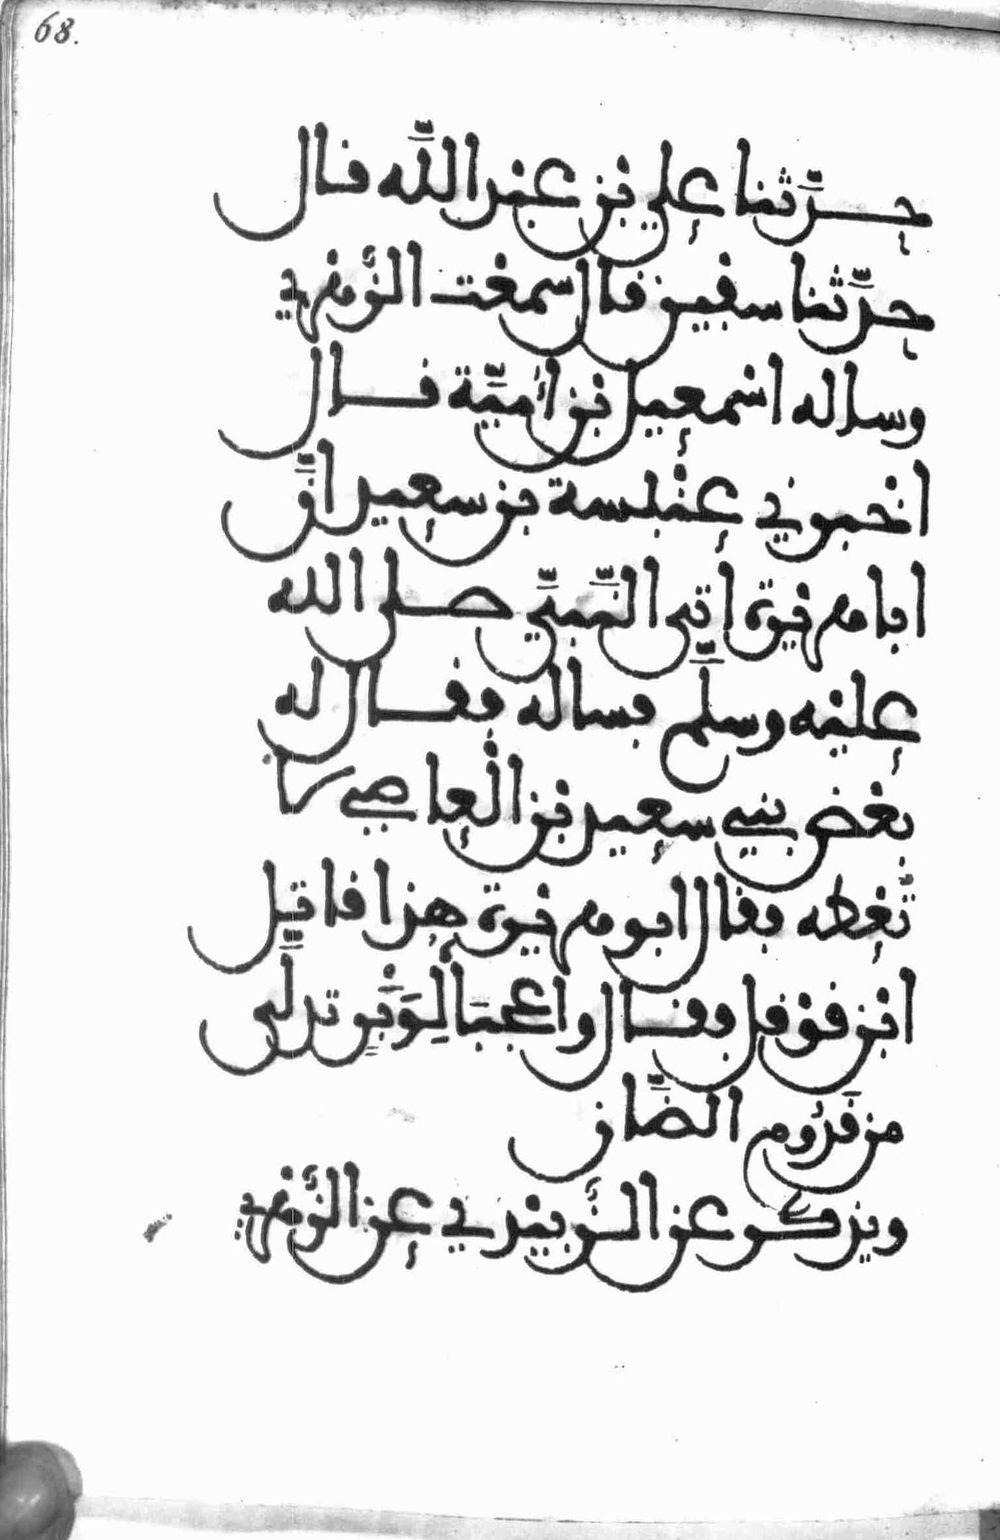 68.
حدّثنا علي بن عبد اللّه قال
حدّثنا سفين قال سمعت الزُّهري
وساله اسمعيل بن أميّة قال
اخبرني عنبسة بن سعيد انّ
ابا هريرة اتى النّبيّ صلى الله
عليه وسلّم فساله فقال له
بعض بني سعيد بن العاصي لا
تّعطه فقال ابو هريرة هذا قاتل
ابن قوقل فقال واعجبَا لِوَبْرٍ تدلّى
من قَدُوم الضّان
ويذكر عن الزُّبيدي عن الزُّهري